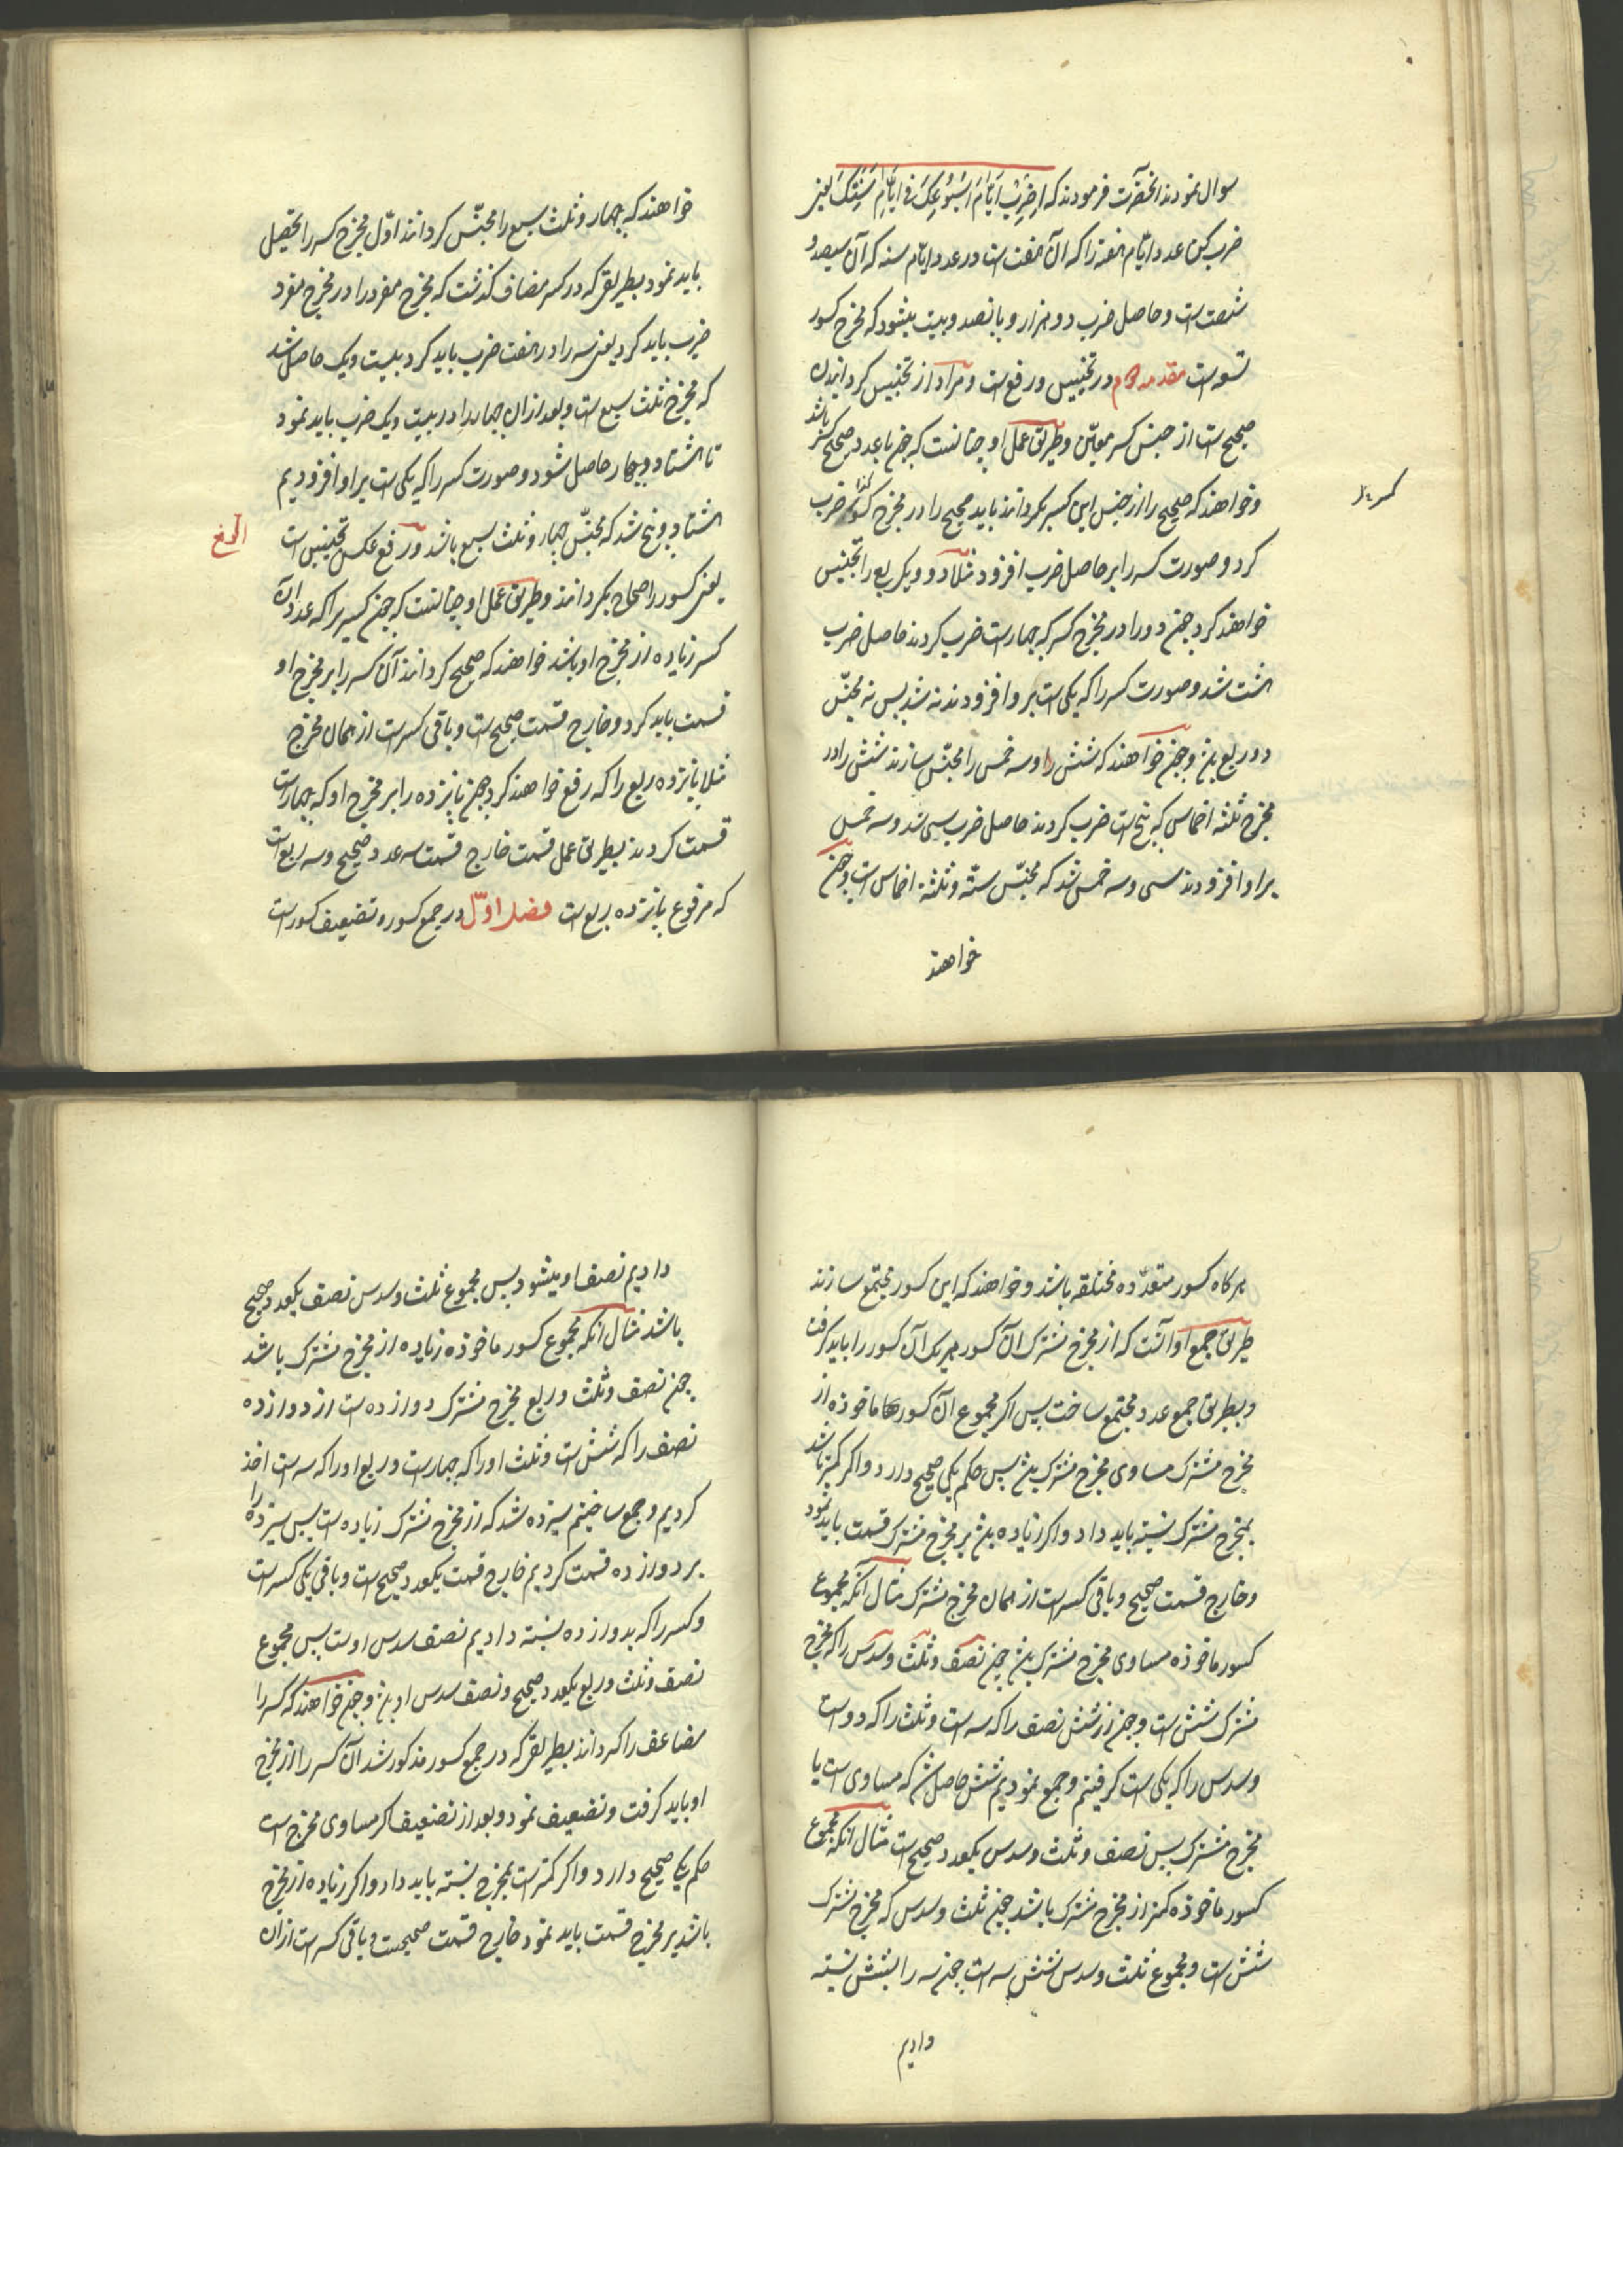 سوال نمودند انحضرت فرمودند که اِضْرِبْ اَیّامَ اُسْبُوعِکَ فی اَیّامِ سَنَتِکَ یعنی
ضرب کن عدد ایّام هفته را که آن هفت است در عدد ایّام سنه که آن سیصد و
شصت است و حاصل ضرب دو هزار و پانصد و بیست میشود که مخرج کسور
تسعه است مقدمه دوم در تجنیس و رفع است و مراد از تجنیس کردانیدن
صحیح است از جنس کسر معیّن و طریق عمل او چنانست که چون با عدد صحیح کسر باشد
و خواهند که صحیح را از جنس این کسر بکردانند باید صحیح را در مخرج کسر ضرب
کرد و صورت کسر را بر حاصل ضرب افزود مثلا دو و یک ربع را تجنیس
خواهند کرد چون دو را در مخرج کسر که چهار است ضرب کردند حاصل ضرب
هشت شد و صورت کسر را که یکی است بر او افزودند نه شد پس نه مجنّس
دو ربع بش و چون خواهند که شش را و سه خمس را مجنّس سازند شش را در
مخرج ثلثه اخماس که پنج است ضرب کردند حاصل ضرب سی شد و سه خمس
بر او افزودند سی و سه خمس شد که مجنّس ستّه و ثلثة اخماس است و چون
خواهند
خواهند که چهار و ثلث سبع را مجنّس کردانند اوّل مخرج کسر را تحصیل
باید نمود بطریقی که در کسر مضاف کذشت که مخرج مفرد را در مخرج مفرد
ضرب باید کرد یعنی سه را در هفت ضرب باید کرد بیست و یک حاصل شد
که مخرج ثلث سبع است و بعد از ان چهار را در بیست و یک ضرب باید نمود
تا هشتاد و چهار حاصل شود و صورت کسر را که یکی است بر او افزودیم
هشتاد و پنج شد که مجنّس چهار و ثلث سبع باشد و رفع عکس تجنیس است
یعنی کسور را صحاح بکردانند و طریق عمل او چنانست که چون کسر را که عدد آن
کسر زیاده از مخرج او باشد خواهند که صحیح کردانند آن کسر را بر مخرج او
قسمت باید کرد و خارج قسمت صحیح است و باقی کسر است از همان مخرج
مثلا پانزده ربع را که رفع خواهند کرد چون پانزده را بر مخرج او که چهار است
قسمت کردند بطریق عمل قسمت خارج قسمت سه عدد صحیح و سه ربع است
که مرفوع پانزده ربع است فصل اوّل در جمع کسور و تضعیف کسور است
هر کاه کسور متعدّده مختلفه باشد و خواهند که این کسور مجتمع سازند
طریق جمع او آنست که از مخرج مشترک آن کسور هر یک آن کسور را باید کرفت
و بطریق جمع عدد مجتمع ساخت پس اکر مجموع آن کسورها ماخوذه از
مخرج مشترک مساوی مخرج مشترک بش پس حکم یکی صحیح دارد و اکر کمتر باشد
بمخرج مشترک نسبته باید داد و اکر زیاده بش بر مخرج مشترک قسمت باید نمود
و خارج قسمت صحیح و باقی کسر است از همان مخرج مشترک مثال آنکه مجموع
کسور ماخوذه مساوی مخرج مشترک بش چون نصف و ثلث و سدس را که مخرج
مشترک شش است و چون از شش نصف را که سه است و ثلث را که دو است
و سدس را که یکی است کرفتیم و جمع نمودیم شش حاصل شد که مساوی است با
مخرج مشترک پس نصف و ثلث و سدس یکعدد صحیح است مثال انکه مجموع
کسور ماخوذه کمتر از مخرج مشترک باشد چون ثلث و سدس که مخرج مشترک
شش است و مجموع ثلث و سدس شش سه است چون سه را بشش نسبته
دادیم
دادیم نصف او میشود پس مجموع ثلث و سدس نصف یکعدد صحیح
باشد مثال انکه مجموع کسور ماخوذه زیاده از مخرج مشترک باشد
چون نصف و ثلث و ربع مخرج مشترک دوازده است از دوازده
نصف را که شش است و ثلث او را که چهار است و ربع او را که سه است اخذ
کردیم و جمع ساختیم سیزده شد که از مخرج مشترک زیاده است پس سیزده را
بر دوازده قسمت کردیم خارج قسمت یکعدد صحیح است و باقی یکی کسر است
و کسر را که بدوازده نسبته دادیم نصف سدس اوست پس مجموع
نصف و ثلث و ربع یکعدد صحیح و نصف سدس او بش و چون خواهند که کسر را
مضاعف را کردانند بطریقی که در جمع کسور مذکور شد آن کسر را از مخرج
او باید کرفت و تضعیف نمود و بعد از تضعیف اکر مساوی مخرج است
حکم یکی صحیح دارد و اکر کمتر است بمخرج نسبته باید داد و اکر زیاده از مخرج
باشد بر مخرج قسمت باید نمود خارج قسمت صحیحست و باقی کسر است از ان